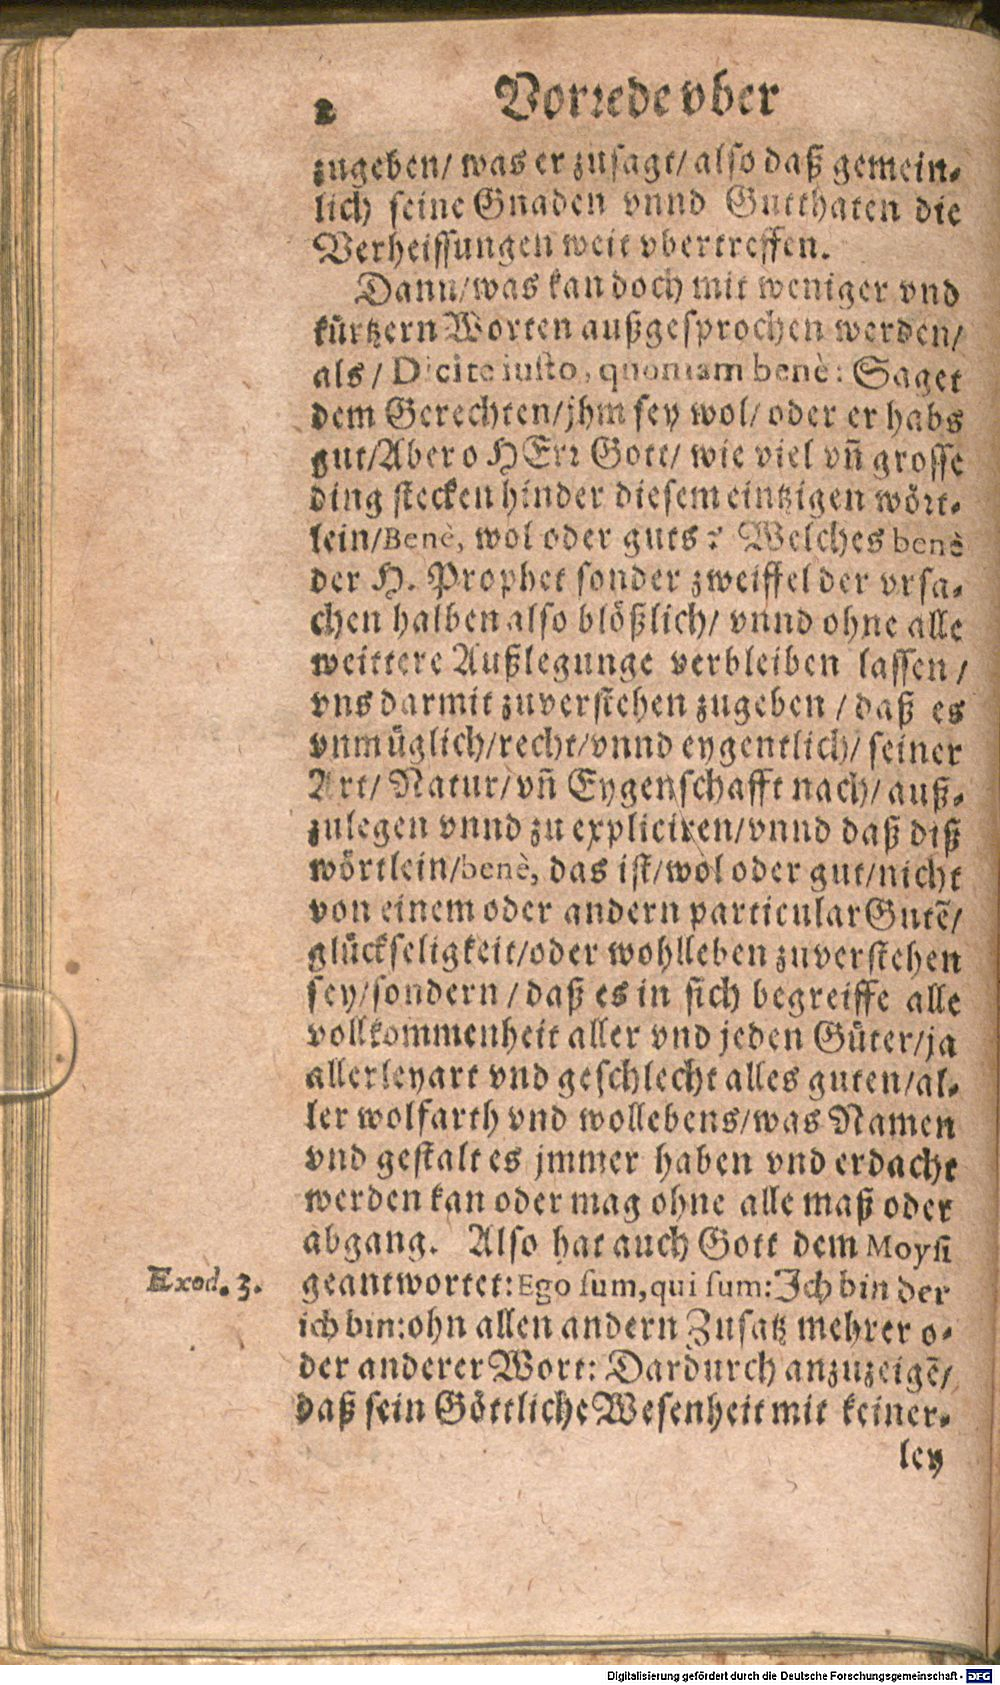 2 Vorrede vber
zugeben/ was er zusagt/ also daß gemein-
lich seine Gnaden vnnd Gutthaten die
Verheissungen weit vbertreffen.
Dann/was kan doch mit weniger vnd
kürtzern Worten außgesprochen werden/
als/ Dicite iusto, quoniam benè: Saget
dem Gerechten/jhm sey wol/ oder er habs
gut/Aber o HErr Gott/ wie viel vñ grosse
ding stecken hinder diesem eintzigen wört-
lein/Benè, wol oder guts? Welches benè
der H. Prophet sonder zweiffel der vrsa-
chen halben also blößlich/ vnnd ohne alle
weittere Außlegunge verbleiben lassen/
vns darmit zuverstehen zugeben/ daß es
vnmüglich/recht/vnnd eygentlich/ seiner
Art/ Natur/vñ Eygenschafft nach/ auß-
zulegen vnnd zu expliciren/vnnd daß diß
wörtlein/benè, das ist/wol oder gut/nicht
von einem oder andern particular Gutē/
glückseligkeit/oder wohlleben zuverstehen
sey/sondern/daß es in sich begreiffe alle
vollkommenheit aller vnd jeden Güter/ja
allerley art vnd geschlecht alles guten/al-
ler wolfarth vnd wollebens/was Namen
vnd gestalt es jmmer haben vnd erdacht
werden kan oder mag ohne alle maß oder
abgang. Also hat auch Gott dem Moysi
Exod. 3. geantwortet: Ego sum, qui sum: Ich bin der
ich bin: ohn allen andern Zusatz mehrer o-
der anderer Wort: Dardurch anzuzeigē/
daß sein Göttliche Wesenheit mit keiner-
ley
Digitalisierung gefördert durch die Deutsche Forschungsgemeinschaft - DFG